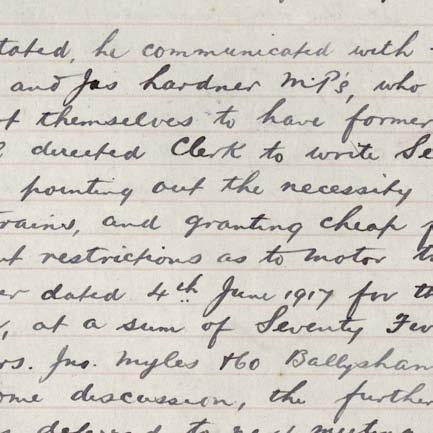 tated, he communicated with
and Jas hardner M.P's, who
themselves to have former
directed Clerk to write Se
pointing out the necessity
rains, and granting cheap f
ut restrictions as to motor t
er dated 4th June 1917 for th
, at a sum of Seventy Fiv
rs. Jno. Myles & Co Ballyshan
ome discussion, the further
deferred to next meeting